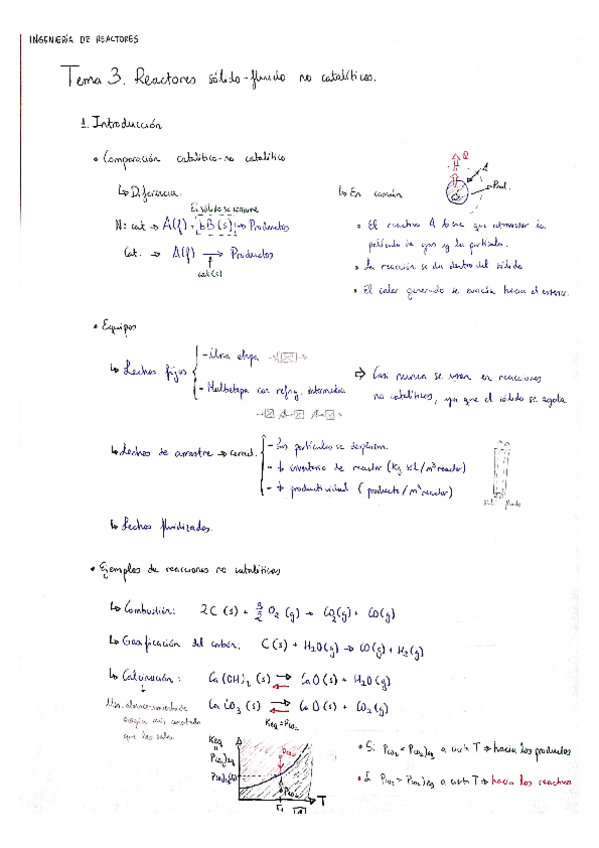 INGENIERÍA DE REACTORES
Tema 3. Reactores sólido-fluido no catalíticos.
1. Introducción
• Comparación catalítico-no catalítico
↳ Diferencia.
El sólido se consume
N: cat → A(f) + bB(s) → Productos
Cat. → A(f) → Productos
cat(s)
↳ En común
Q
A
Prod.
• El reactivo A tiene que atravesar la
película de gas y la partícula.
• La reacción se da dentro del sólido
• El calor generado se evacúa hacia el exterior.
• Equipos
↳ Lechos fijos
- Una etapa
- Multietapa con refrig. intermedia
⇒ Casi nunca se usan en reacciones
no catalíticas, ya que el sólido se agota
↳ Lechos de arrastre → caract.
- Las partículas se desplazan
- ↓ inventario de reactor (kg sol/m³ reactor)
- ↓ productividad (producto/m³ reactor)
Sol. fluido
↳ Lechos fluidizados.
• Ejemplos de reacciones no catalíticas
↳ Combustión: 2C (s) + 3/2 O₂ (g) → CO₂(g) + CO(g)
↳ Gasificación del carbón: C(s) + H₂O(g) → CO(g) + H₂(g)
↳ Calcinación: Ca(OH)₂ (s) ⇄ CaO(s) + H₂O(g)
almacenamiento de
energía más
que las sales
CaCO₃ (s) ⇄ CaO(s) + CO₂(g)
Keq = Pco₂
Keq
Pco₂)eq
Pco₂
Pco₂
T₁
T
• Si Pco₂ < Pco₂)eq a una T → hacia los productos
• Si Pco₂ > Pco₂)eq a una T → hacia los reactivos